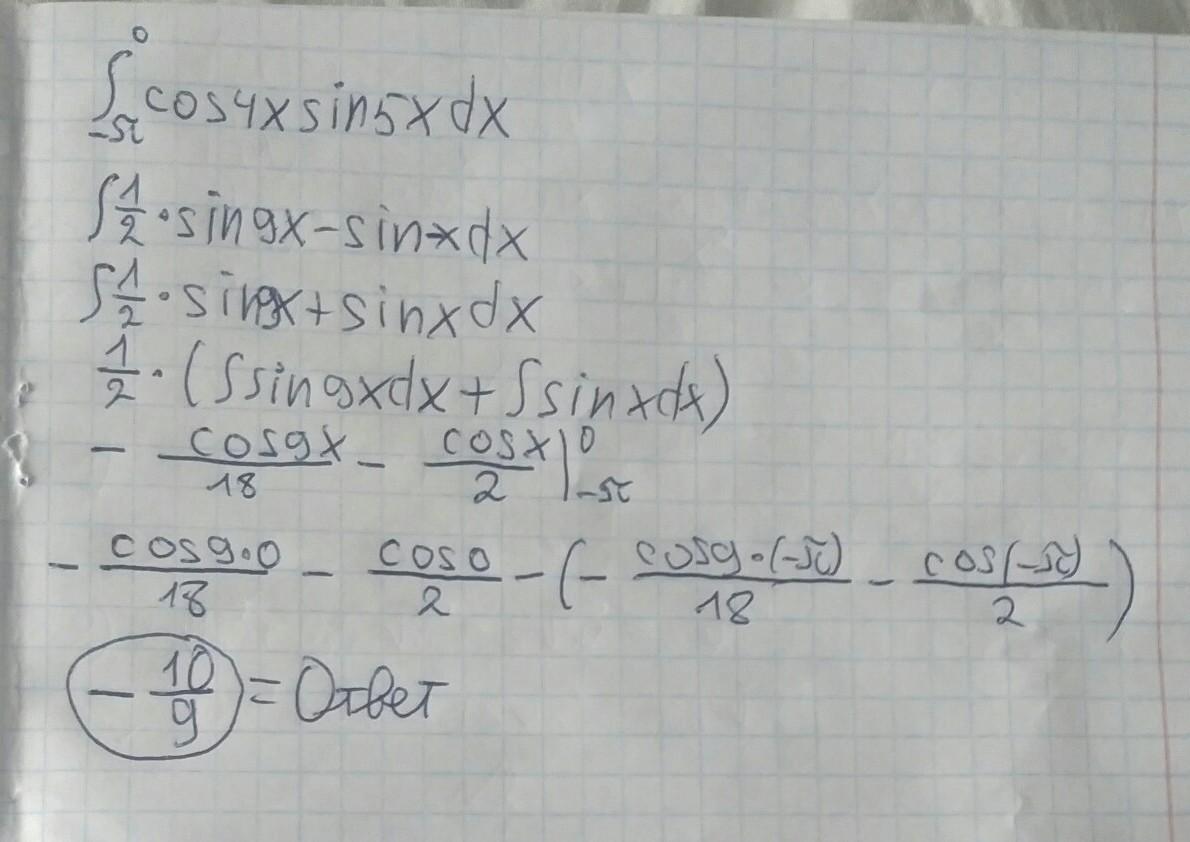 ∫₋π⁰ cos4x sin5x dx
∫ 1/2 · sin9x - sin-x dx
∫ 1/2 · sin9x + sinx dx
1/2 · (∫sin9xdx + ∫sinxdx)
- cos9x/18 - cosx/2 |₋π⁰
- cos9·0/18 - cos0/2 - (- cos9·(-π)/18 - cos(-π)/2)
- 10/9 = Ответ